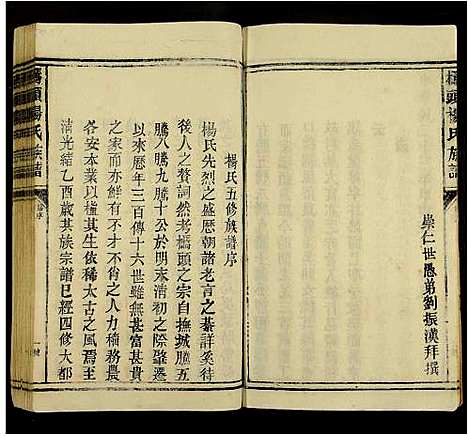 橋頭楊氏族譜
崇仁世愚弟劉振漢拜撰
楊氏五修族譜序
楊氏先烈之盛歷朝諸老言之綦詳奚待
後人之贅詞然考橋頭之宗自撫城騰五
騰八騰九騰十公於明末清初之際肇遷
以來歷年三百傳十六世雖無甚富甚貴
之家而亦鮮有不才不肖之人力穡務農
各安本業以植其生依稀太古之風焉至
清光緒乙酉歲其族宗譜已經四修大都
橋頭楊氏族譜